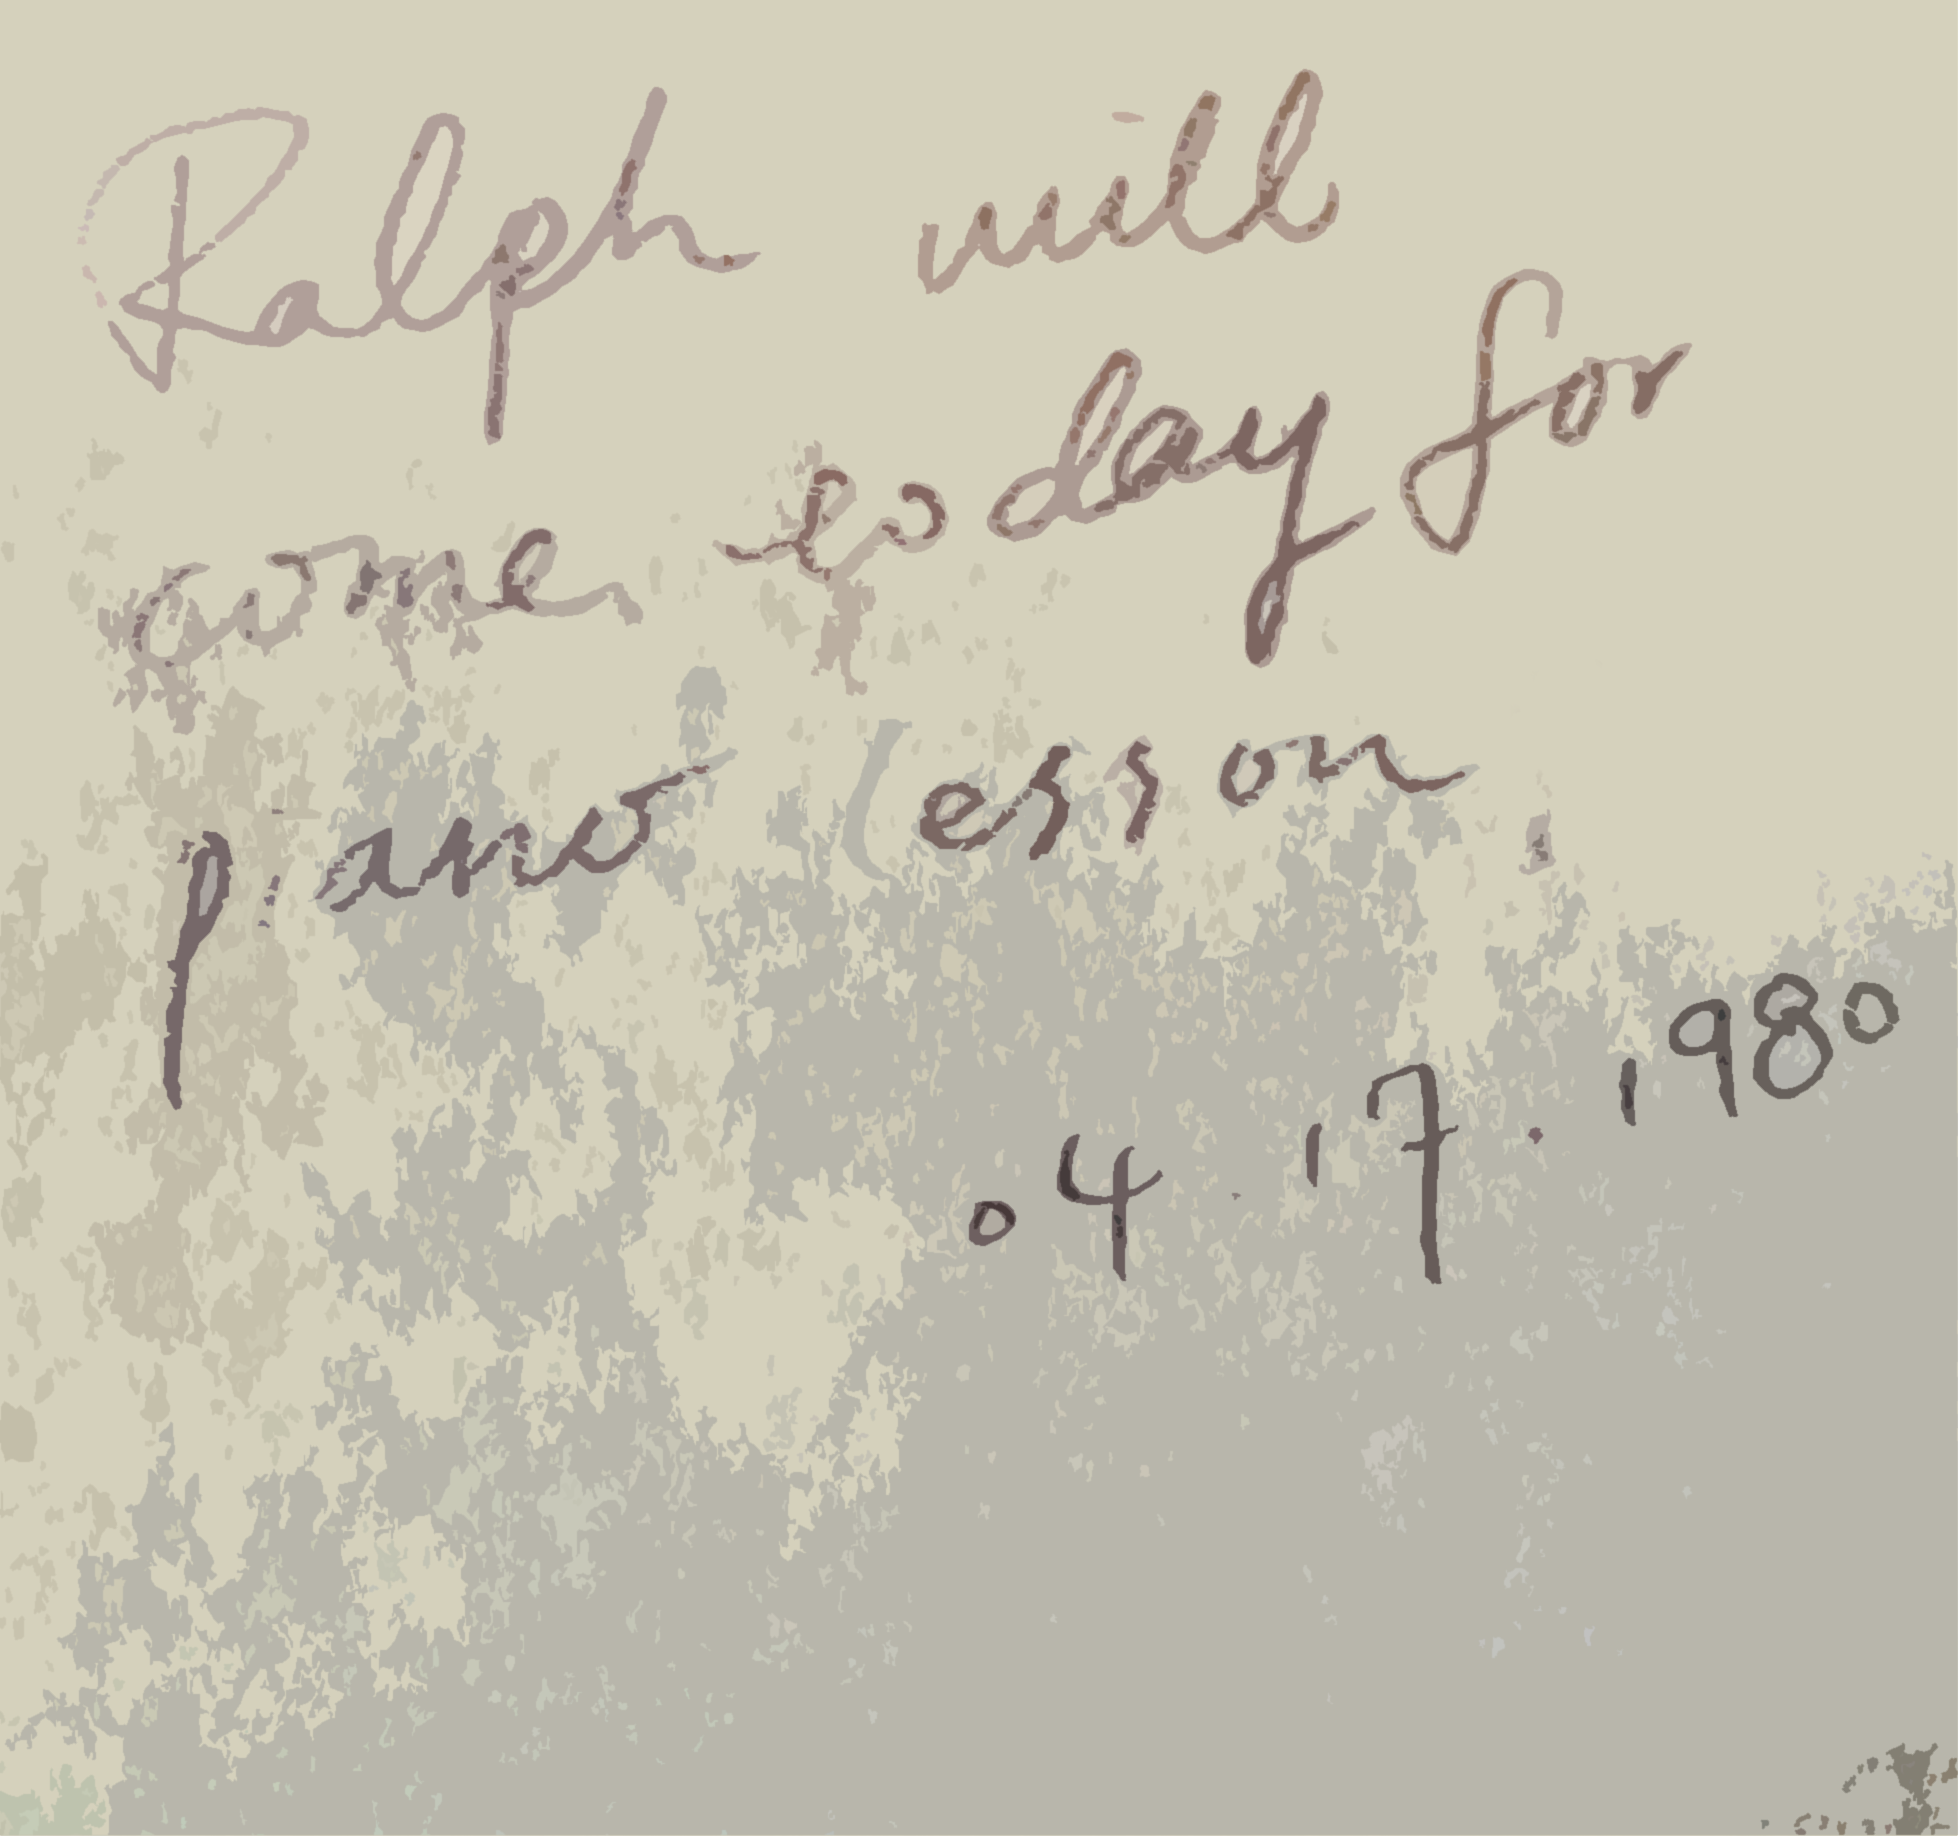 Ralph will
come today for
piano lesson.
04.17.1980